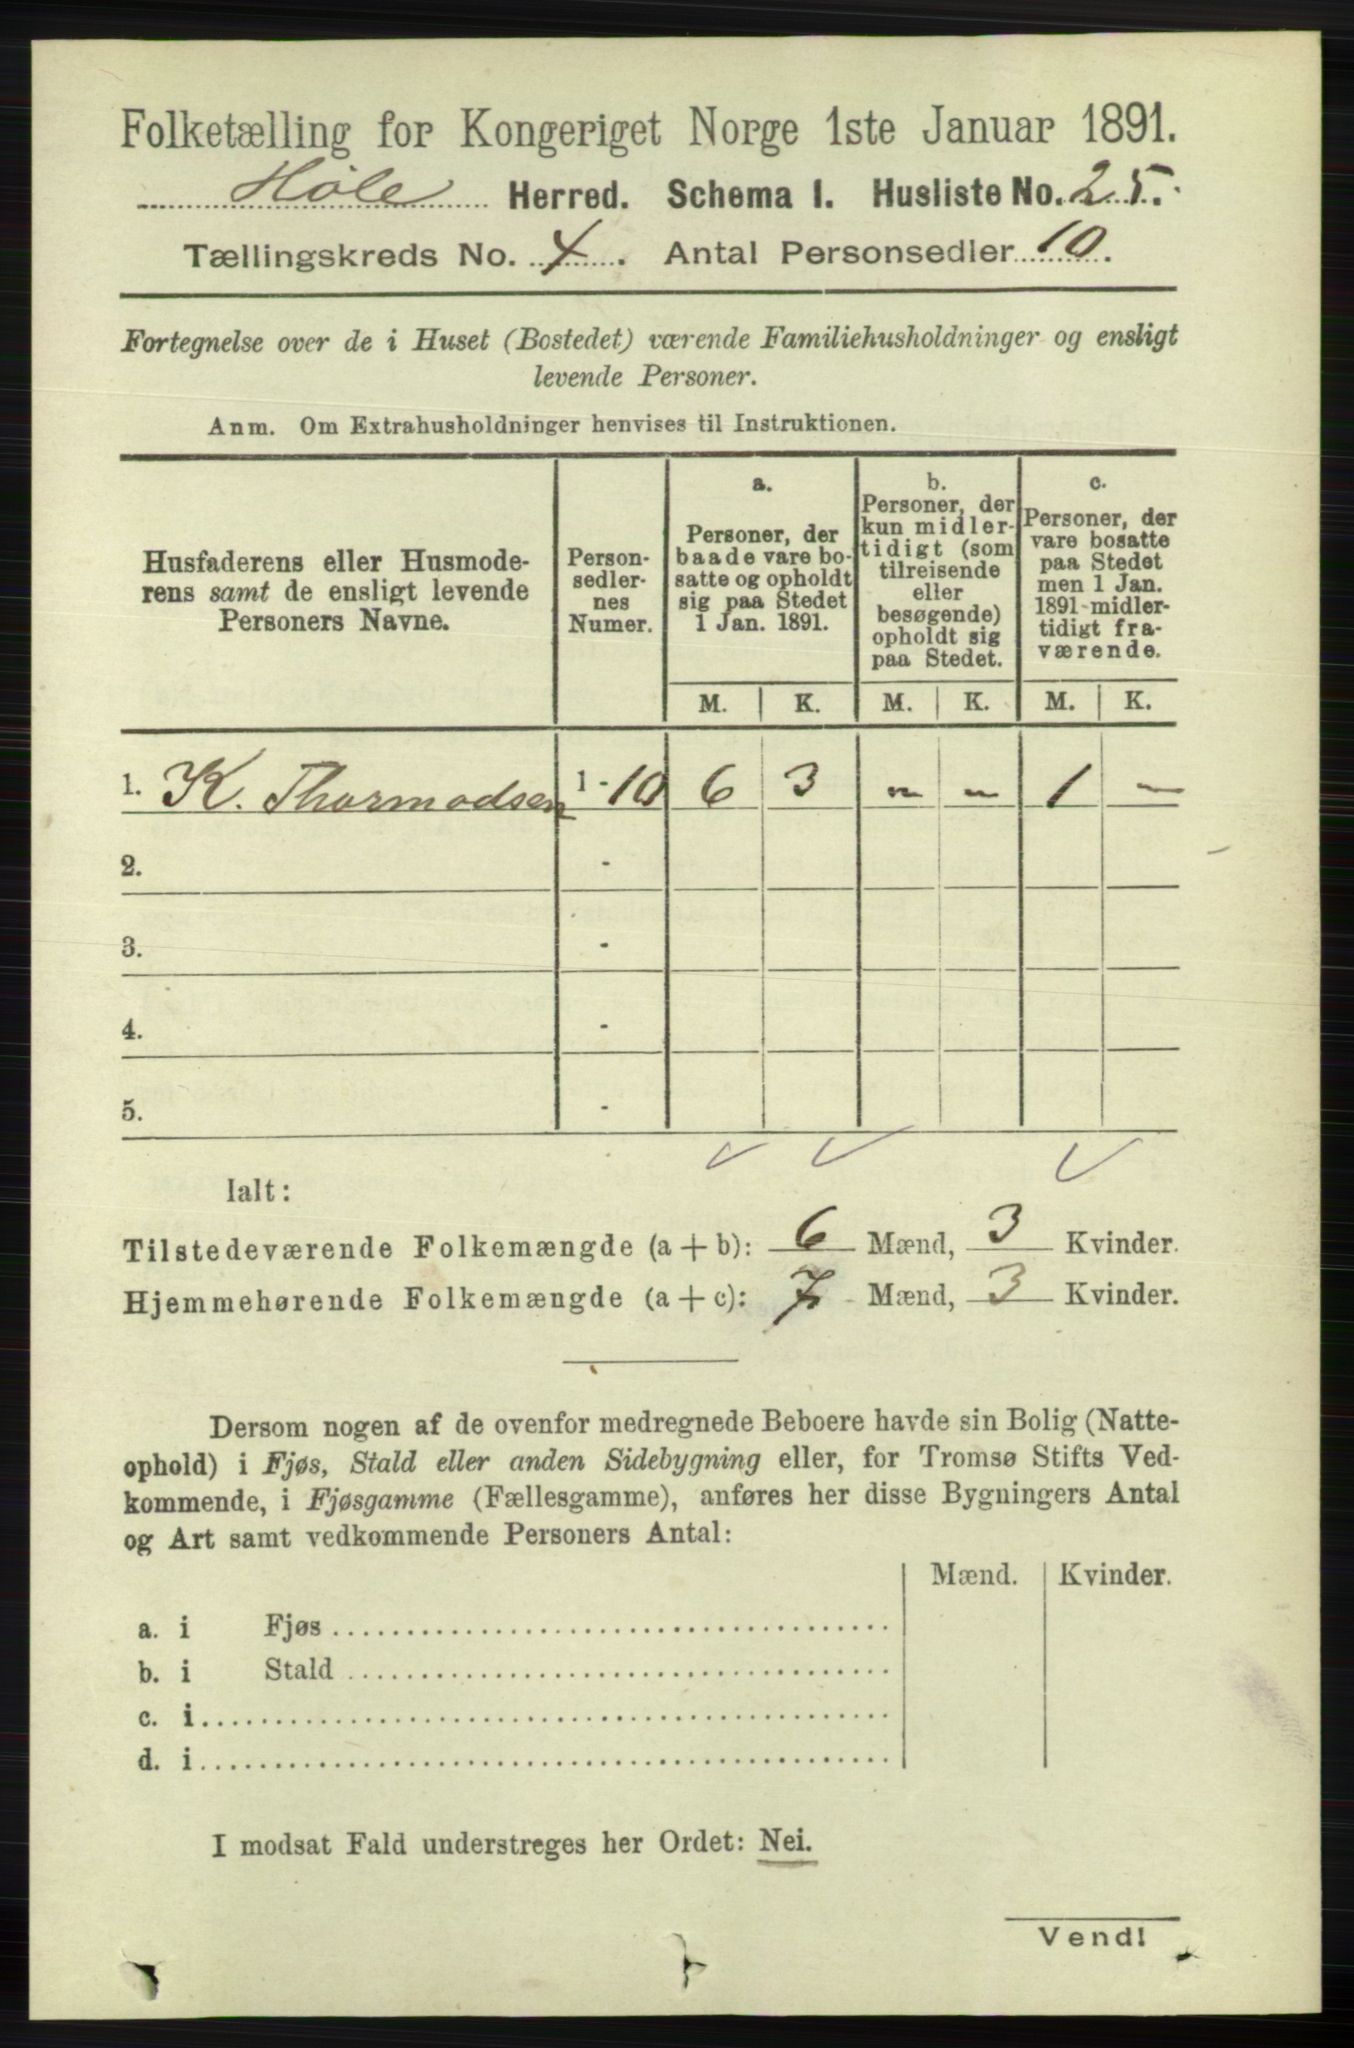 Folketælling for Kongeriget Norge 1ste Januar 1891.
Høle Herred. Schema I. Husliste No. 25.
Tællingskreds No. 4. Antal Personsedler 10.
Fortegnelse over de i Huset (Bostedet) værende Familiehusholdninger og ensligt
levende Personer.
Anm. Om Extrahusholdninger henvises til Instruktionen.
Husfaderens eller Husmode-
rens samt de ensligt levende
Personers Navne.
Person-
sedler-
nes
Numer.
a.
Personer, der
baade vare bo-
satte og opholdt
sig paa Stedet
1 Jan. 1891.
b.
Personer, der
kun midler-
tidigt (som
tilreisende
eller
besøgende)
opholdt sig
paa Stedet.
c.
Personer, der
vare bosatte
paa Stedet
men 1 Jan.
1891 midler-
tidigt fra-
værende.
M. K. M. K. M. K.
1. K. Thormodsen 1 - 10 6 3 – – 1 –
2. -
3. -
4. -
5. -
Ialt:
Tilstedeværende Folkemængde (a + b): 6 Mænd, 3 Kvinder.
Hjemmehørende Folkemængde (a + c): 7 Mænd, 3 Kvinder.
Dersom nogen af de ovenfor medregnede Beboere havde sin Bolig (Natte-
ophold) i Fjøs, Stald eller anden Sidebygning eller, for Tromsø Stifts Ved-
kommende, i Fjøsgamme (Fællesgamme), anføres her disse Bygningers Antal
og Art samt vedkommende Personers Antal:
Mænd. Kvinder.
a. i Fjøs
b. i Stald
c. i
d. i
I modsat Fald understreges her Ordet: Nei.
Vend!